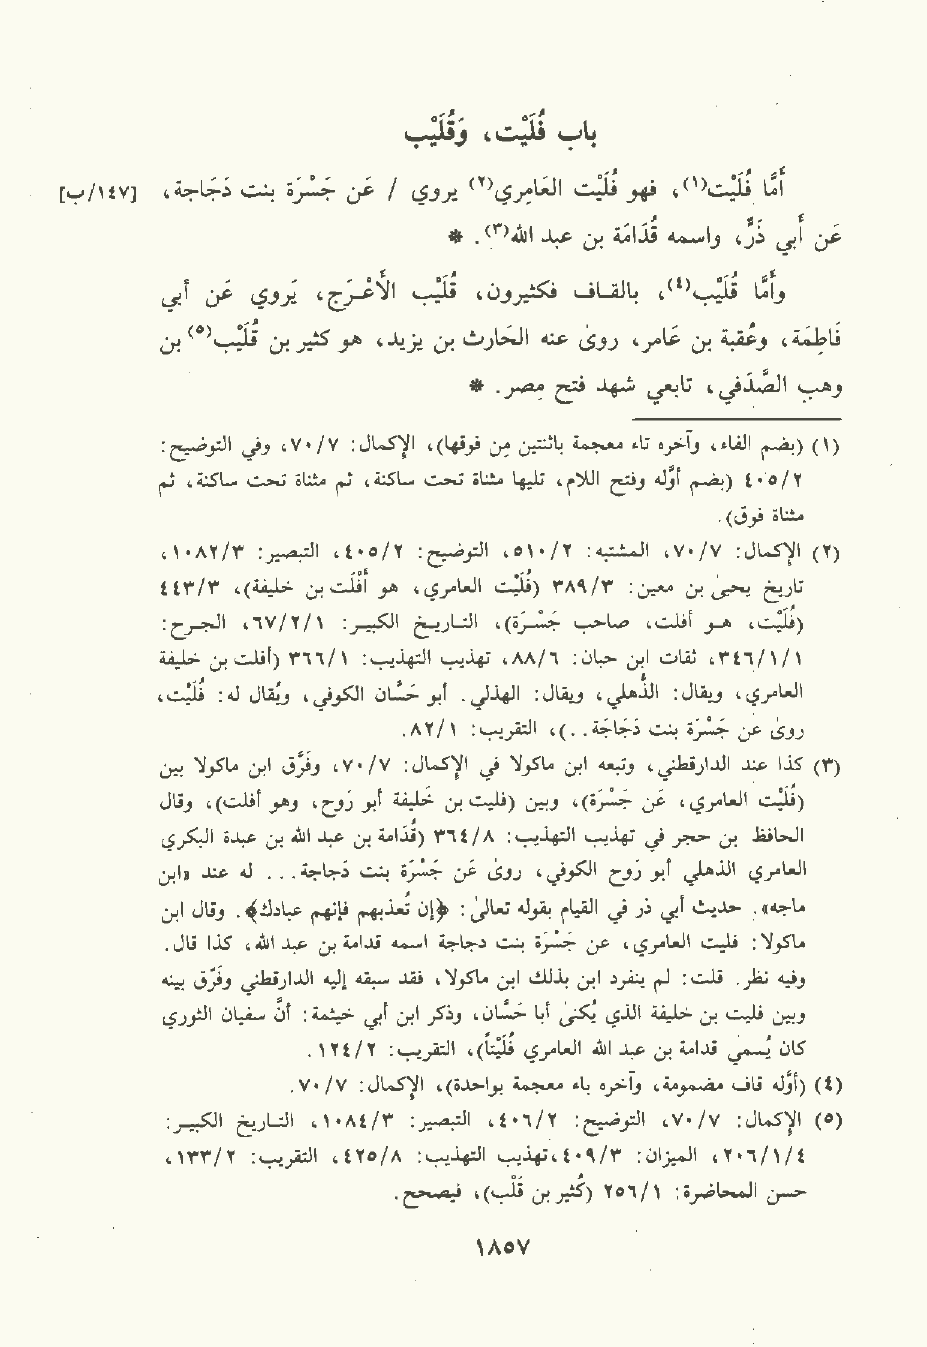 باب فُلَيْت، وَقُلَيْب
أَمَّا فُلَيْت(١)، فهو فُلَيْت العَامِري(٢) يروي / عَن جَسْرَة بنت دَجَاجة، [١٤٧/ب]
عَن أَبي ذَرّ، واسمه قُدَامَة بن عبد الله(٣). *
وأَمَّا قُلَيْب(٤)، بالقاف فكثيرون، قُلَيْب الأَعْرَج، يَروي عَن أبي
فَاطِمَة، وعُقبة بن عَامر، روىٰ عنه الحَارث بن يزيد، هو كثير بن قُلَيْب(٥) بن
وهب الصَّدَفي، تابعي شهد فتح مِصر. *
(١) (بضم الفاء، وآخره تاء معجمة باثنتين مِن فوقها)، الإكمال: ٧/٧٠، وفي التوضيح:
٢/٤٠٥ (بضم أوَّله وفتح اللام، تليها مثناة تحت ساكنة، ثم مثناة تحت ساكنة، ثم
مثناة فوق).
(٢) الإكمال: ٧/٧٠، المشتبه: ٢/٥١٠، التوضيح: ٢/٤٠٥، التبصير: ٣/١٠٨٢،
تاريخ يحيىٰ بن معين: ٣/٣٨٩ (فُلَيْت العامري، هو أَفْلَت بن خليفة)، ٣/٤٤٣
(فُلَيْت، هو أفلت، صاحب جَسْرَة)، التاريخ الكبير: ١/٢/٦٧، الجرح:
١/١/٣٤٦، ثقات ابن حبان: ٦/٨٨، تهذيب التهذيب: ١/٣٦٦ (أفلت بن خليفة
العامري، ويقال: الذُهلي، ويقال: الهذلي. أبو حَسَّان الكوفي، ويُقال له: فُلَيْت،
روىٰ عن جَسْرَة بنت دَجَاجَة. .)، التقريب: ١/٨٢.
(٣) كذا عند الدارقطني، وتبعه ابن ماكولا في الإكمال: ٧/٧٠، وفَرَّق ابن ماكولا بين
(فُلَيْت العامري، عَن جَسْرَة)، وبين (فليت بن خَليفة أبو رَوح، وهو أفلت)، وقال
الحافظ بن حجر في تهذيب التهذيب: ٨/٣٦٤ (قُدَامة بن عبد الله بن عبدة البكري
العامري الذهلي أبو رَوح الكوفي، روىٰ عَن جَسْرَة بنت دَجاجة. . . له عند «ابن
ماجه». حديث أبي ذر في القيام بقوله تعالىٰ: ﴿إن تُعذبهم فإنهم عبادك﴾. وقال ابن
ماكولا: فليت العامري، عن جَسْرَة بنت دجاجة اسمه قدامة بن عبد الله، كذا قال.
وفيه نظر. قلت: لم ينفرد ابن بذلك ابن ماكولا، فقد سبقه إليه الدارقطني وفَرَّق بينه
وبين فليت بن خليفة الذي يُكنىٰ أبا حَسَّان، وذكر ابن أبي خيثمة: أنَّ سفيان الثوري
كان يُسمي قدامة بن عبد الله العامري فُلَيْتاً)، التقريب: ٢/١٢٤.
(٤) (أوَّله قاف مضمومة، وآخره باء معجمة بواحدة)، الإكمال: ٧/٧٠.
(٥) الإكمال: ٧/٧٠، التوضيح: ٢/٤٠٦، التبصير: ٣/١٠٨٤، التاريخ الكبير:
٤/١/٢٠٦، الميزان: ٣/٤٠٩، تهذيب التهذيب: ٨/٤٢٥، التقريب: ٢/١٣٣،
حسن المحاضرة: ١/٢٥٦ (كُثير بن قَلْب)، فيصحح.
١٨٥٧